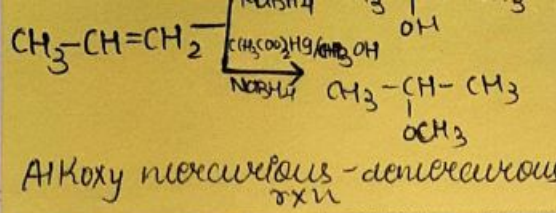 NaBH4
OH
CH3-CH=CH2
(CH3COO)2Hg/CH3OH
NaBH4
CH3-CH-CH3
OCH3
Alkoxy mercurious-demercurous
rxn